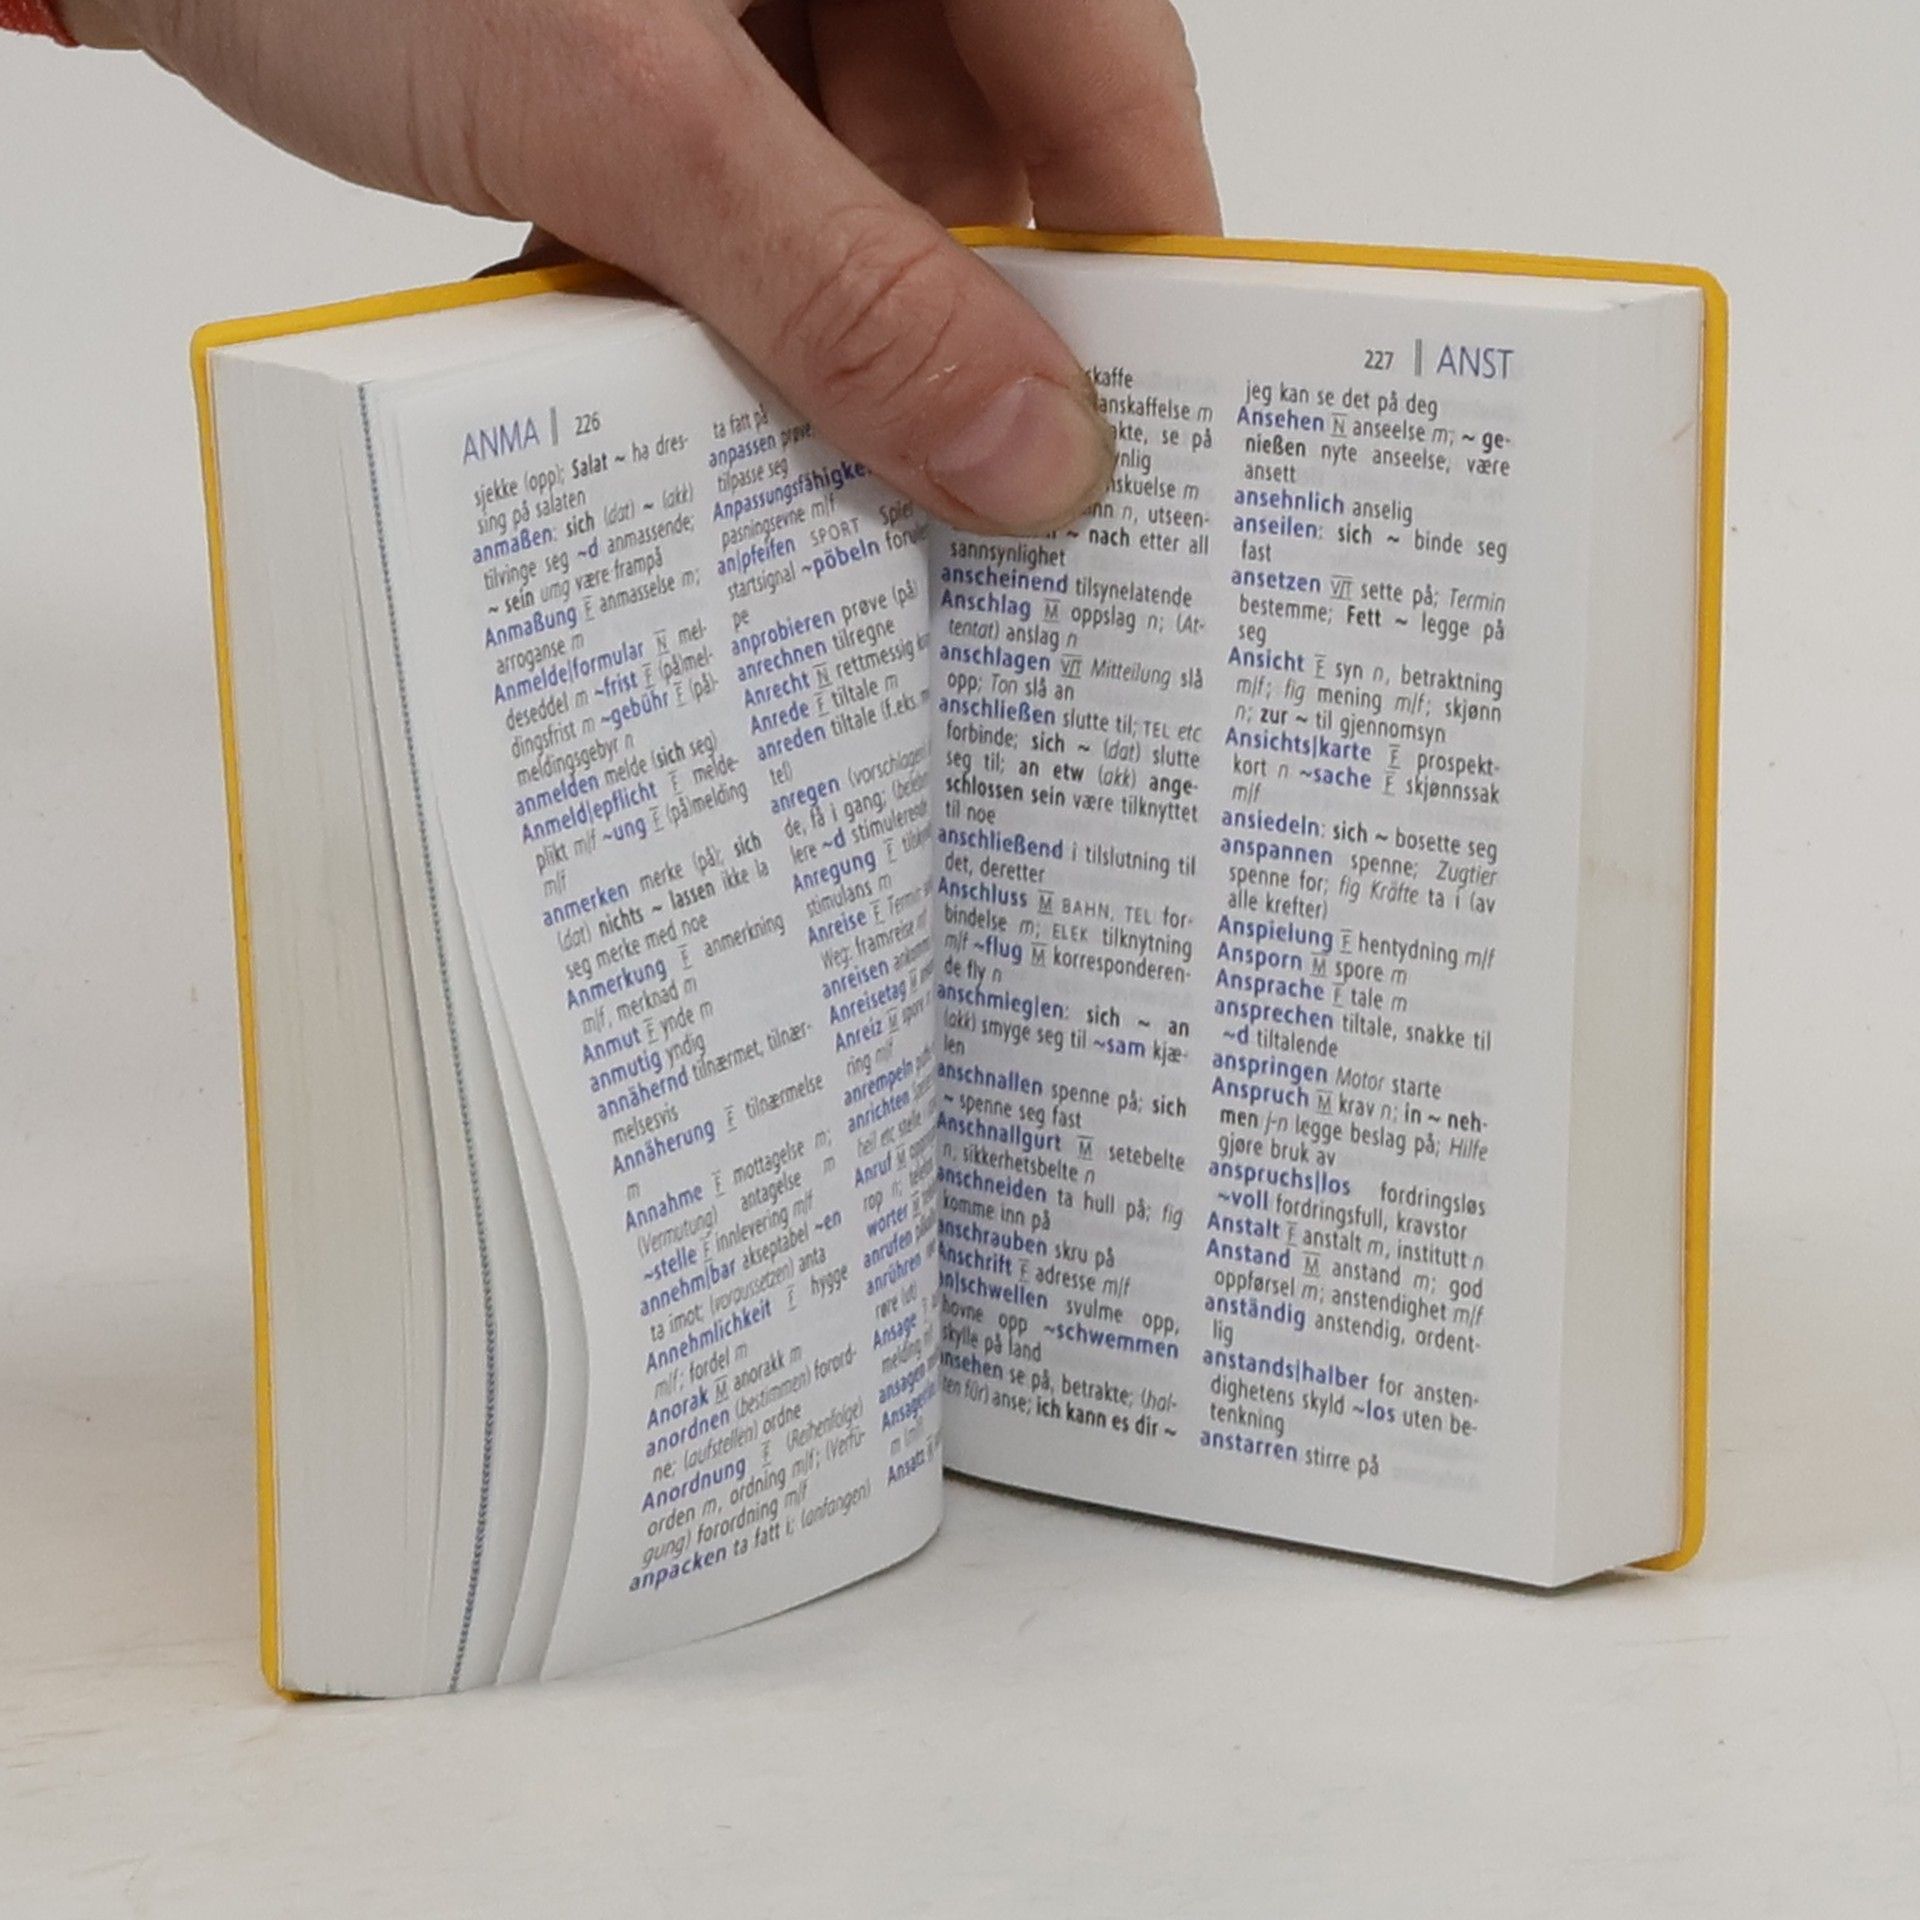 ANMA 226
sjekke (opp); Salat ~ ha dres-
sing på salaten
anmaßen: sich (dat) ~ (akk)
tilvinge seg ~d anmassende;
~ sein umg være frampå
Anmaßung F anmasselse m;
arroganse m
Anmelde|formular N mel-
deseddel m ~frist F (på)mel-
dingsfrist m ~gebühr F (på)-
meldingsgebyr n
anmelden melde (sich seg)
Anmeld|epflicht F melde-
plikt m/f ~ung F (på)melding
m/f
anmerken merke (på); sich
(dat) nichts ~ lassen ikke la
seg merke med noe
Anmerkung F anmerkning
m/f, merknad m
Anmut F ynde m
anmutig yndig
annähernd tilnærmet, tilnær-
melsesvis
Annäherung F tilnærmelse
m
Annahme F mottagelse m;
(Vermutung) antagelse m
~stelle F innlevering m/f
annehm|bar akseptabel ~en
ta imot; (voraussetzen) anta
Annehmlichkeit F hygge
m/f; fordel m
Anorak M anorakk m
anordnen (bestimmen) forord-
ne; (aufstellen) ordne
Anordnung F (Reihenfolge)
orden m, ordning m/f; (Verfü-
gung) forordning m/f
anpacken ta fatt i; (anfangen)
ta fatt på
anpassen prøve
tilpasse seg
pasningsevne m/f
an|pfeifen SPORT Spiel
startsignal ~pöbeln
pe
anprobieren prøve (på)
anrechnen tilregne
Anrecht N rettmessig
Anrede F tiltale m
anreden tiltale (f.eks.
tel)
anregen (vorschlagen)
de, få i gang; (beleben)
lere ~d stimulerende
Anregung F
stimulans m
Anreise F Termin
Weg: framreise
anreisen
Anreisetag M
Anreiz M spore
ring m/f
anrempeln
anrichten
heil etc stelle
Anruf M
rop n; telefon
anrufen
anrühren
røre (ut)
Ansage F
melding m/f
ansagen
m
Ansatz M
227 ANST
skaffe
anskaffelse m
akte, se på
ynlig
nskuelse m
nn n, utseen-
~ nach etter all
sannsynlighet
anscheinend tilsynelatende
Anschlag M oppslag n; (At-
tentat) anslag n
anschlagen V/T Mitteilung slå
opp; Ton slå an
anschließen slutte til; TEL etc
forbinde; sich ~ (dat) slutte
seg til; an etw (akk) ange-
schlossen sein være tilknyttet
til noe
anschließend i tilslutning til
det, deretter
Anschluss M BAHN, TEL for-
bindelse m; ELEK tilknytning
m/f ~flug M korresponderen-
de fly n
anschmieg|en: sich ~ an
(akk) smyge seg til ~sam kjæ-
len
anschnallen spenne på; sich
~ spenne seg fast
Anschnallgurt M setebelte
n, sikkerhetsbelte n
anschneiden ta hull på; fig
komme inn på
anschrauben skru på
Anschrift F adresse m/f
an|schwellen svulme opp,
hovne opp ~schwemmen
skylle på land
ansehen se på, betrakte; (hal-
ten für) anse; ich kann es dir ~
jeg kan se det på deg
Ansehen N anseelse m; ~ ge-
nießen nyte anseelse, være
ansett
ansehnlich anselig
anseilen: sich ~ binde seg
fast
ansetzen V/T sette på; Termin
bestemme; Fett ~ legge på
seg
Ansicht F syn n, betraktning
m/f; fig mening m/f; skjønn
n; zur ~ til gjennomsyn
Ansichts|karte F prospekt-
kort n ~sache F skjønnssak
m/f
ansiedeln: sich ~ bosette seg
anspannen spenne; Zugtier
spenne for; fig Kräfte ta i (av
alle krefter)
Anspielung F hentydning m/f
Ansporn M spore m
Ansprache F tale m
ansprechen tiltale, snakke til
~d tiltalende
anspringen Motor starte
Anspruch M krav n; in ~ neh-
men j-n legge beslag på; Hilfe
gjøre bruk av
anspruchs|los fordringsløs
~voll fordringsfull, kravstor
Anstalt F anstalt m, institutt n
Anstand M anstand m; god
oppførsel m; anstendighet m/f
anständig anstendig, ordent-
lig
anstands|halber for ansten-
dighetens skyld ~los uten be-
tenkning
anstarren stirre på